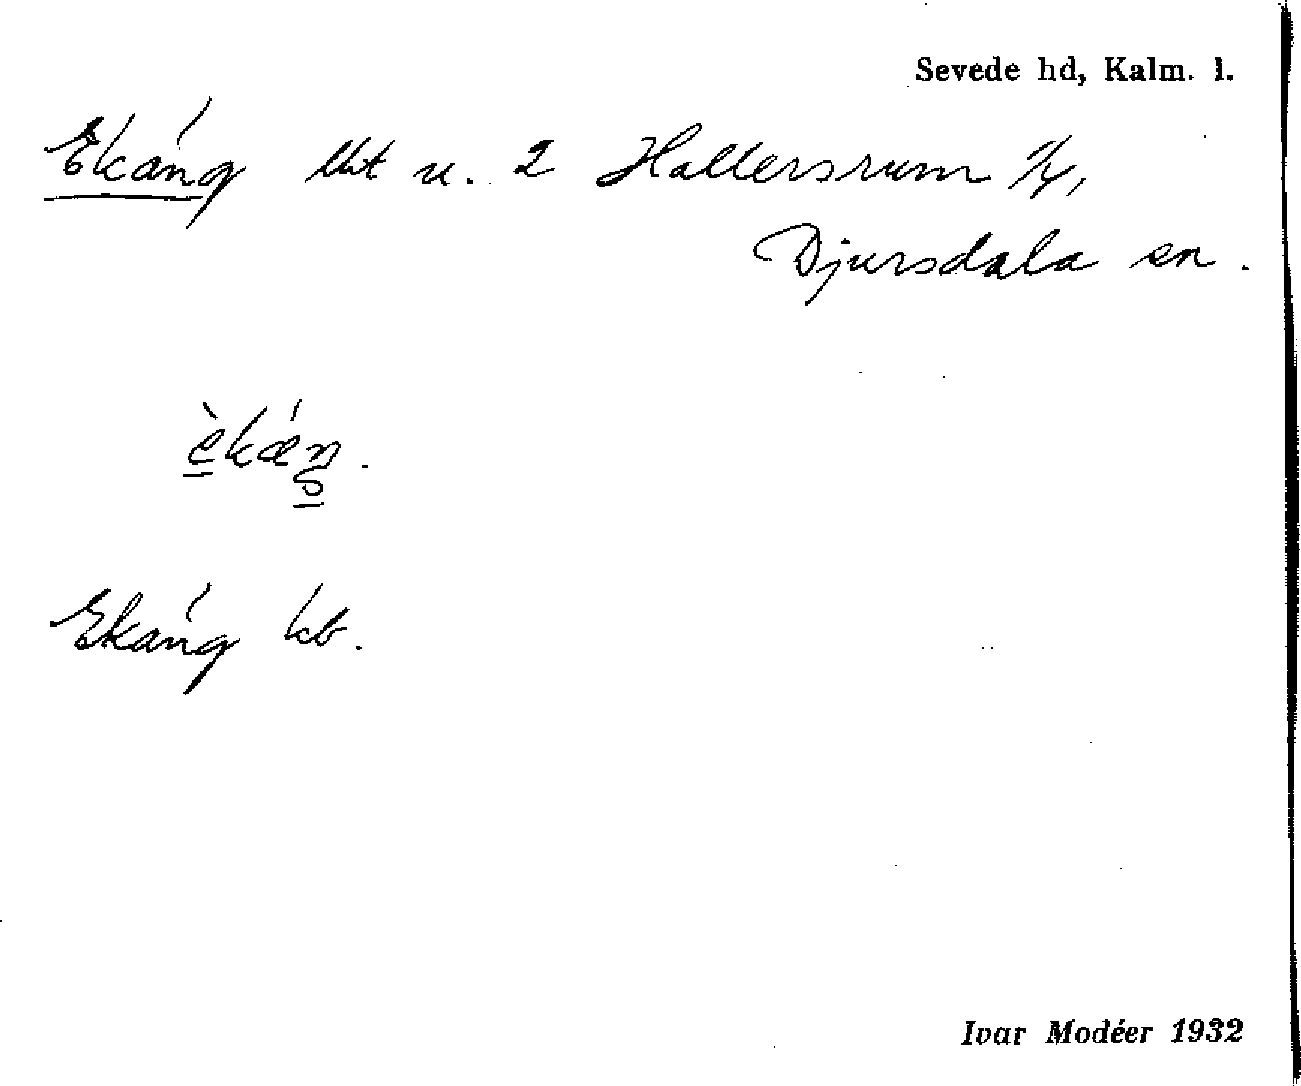 Sevede hd, Kalm. l.
Ekáng lht u. 2 Hallersrum 1/4,
Djursdala sn.
Ekáng kb.
Ivar Modéer 1932